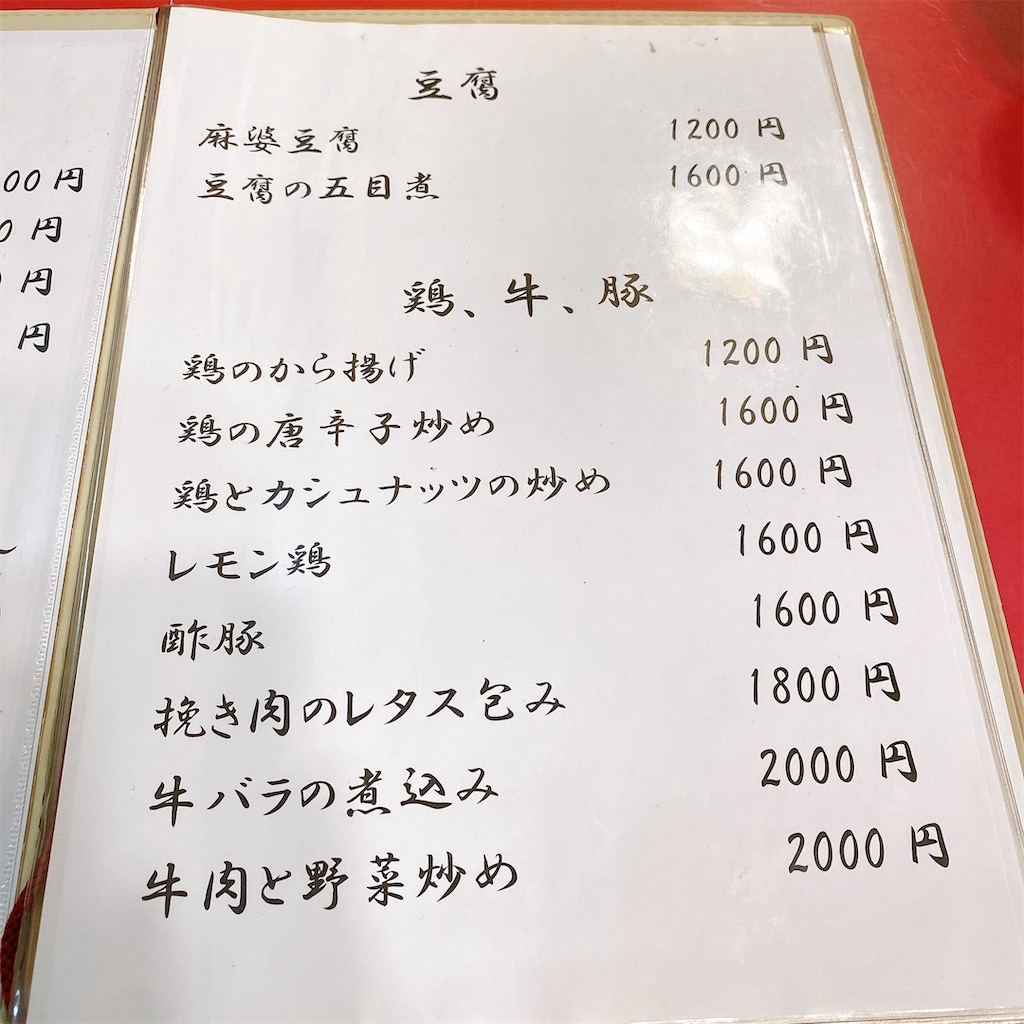 00円
0 円
円
円
豆腐
麻婆豆腐 1200 円
豆腐の五目煮 1600 円
鶏、牛、豚
鶏のから揚げ 1200 円
鶏の唐辛子炒め 1600 円
鶏とカシュナッツの炒め 1600 円
レモン鶏 1600 円
酢豚 1600 円
挽き肉のレタス包み 1800 円
牛バラの煮込み 2000 円
牛肉と野菜炒め 2000 円